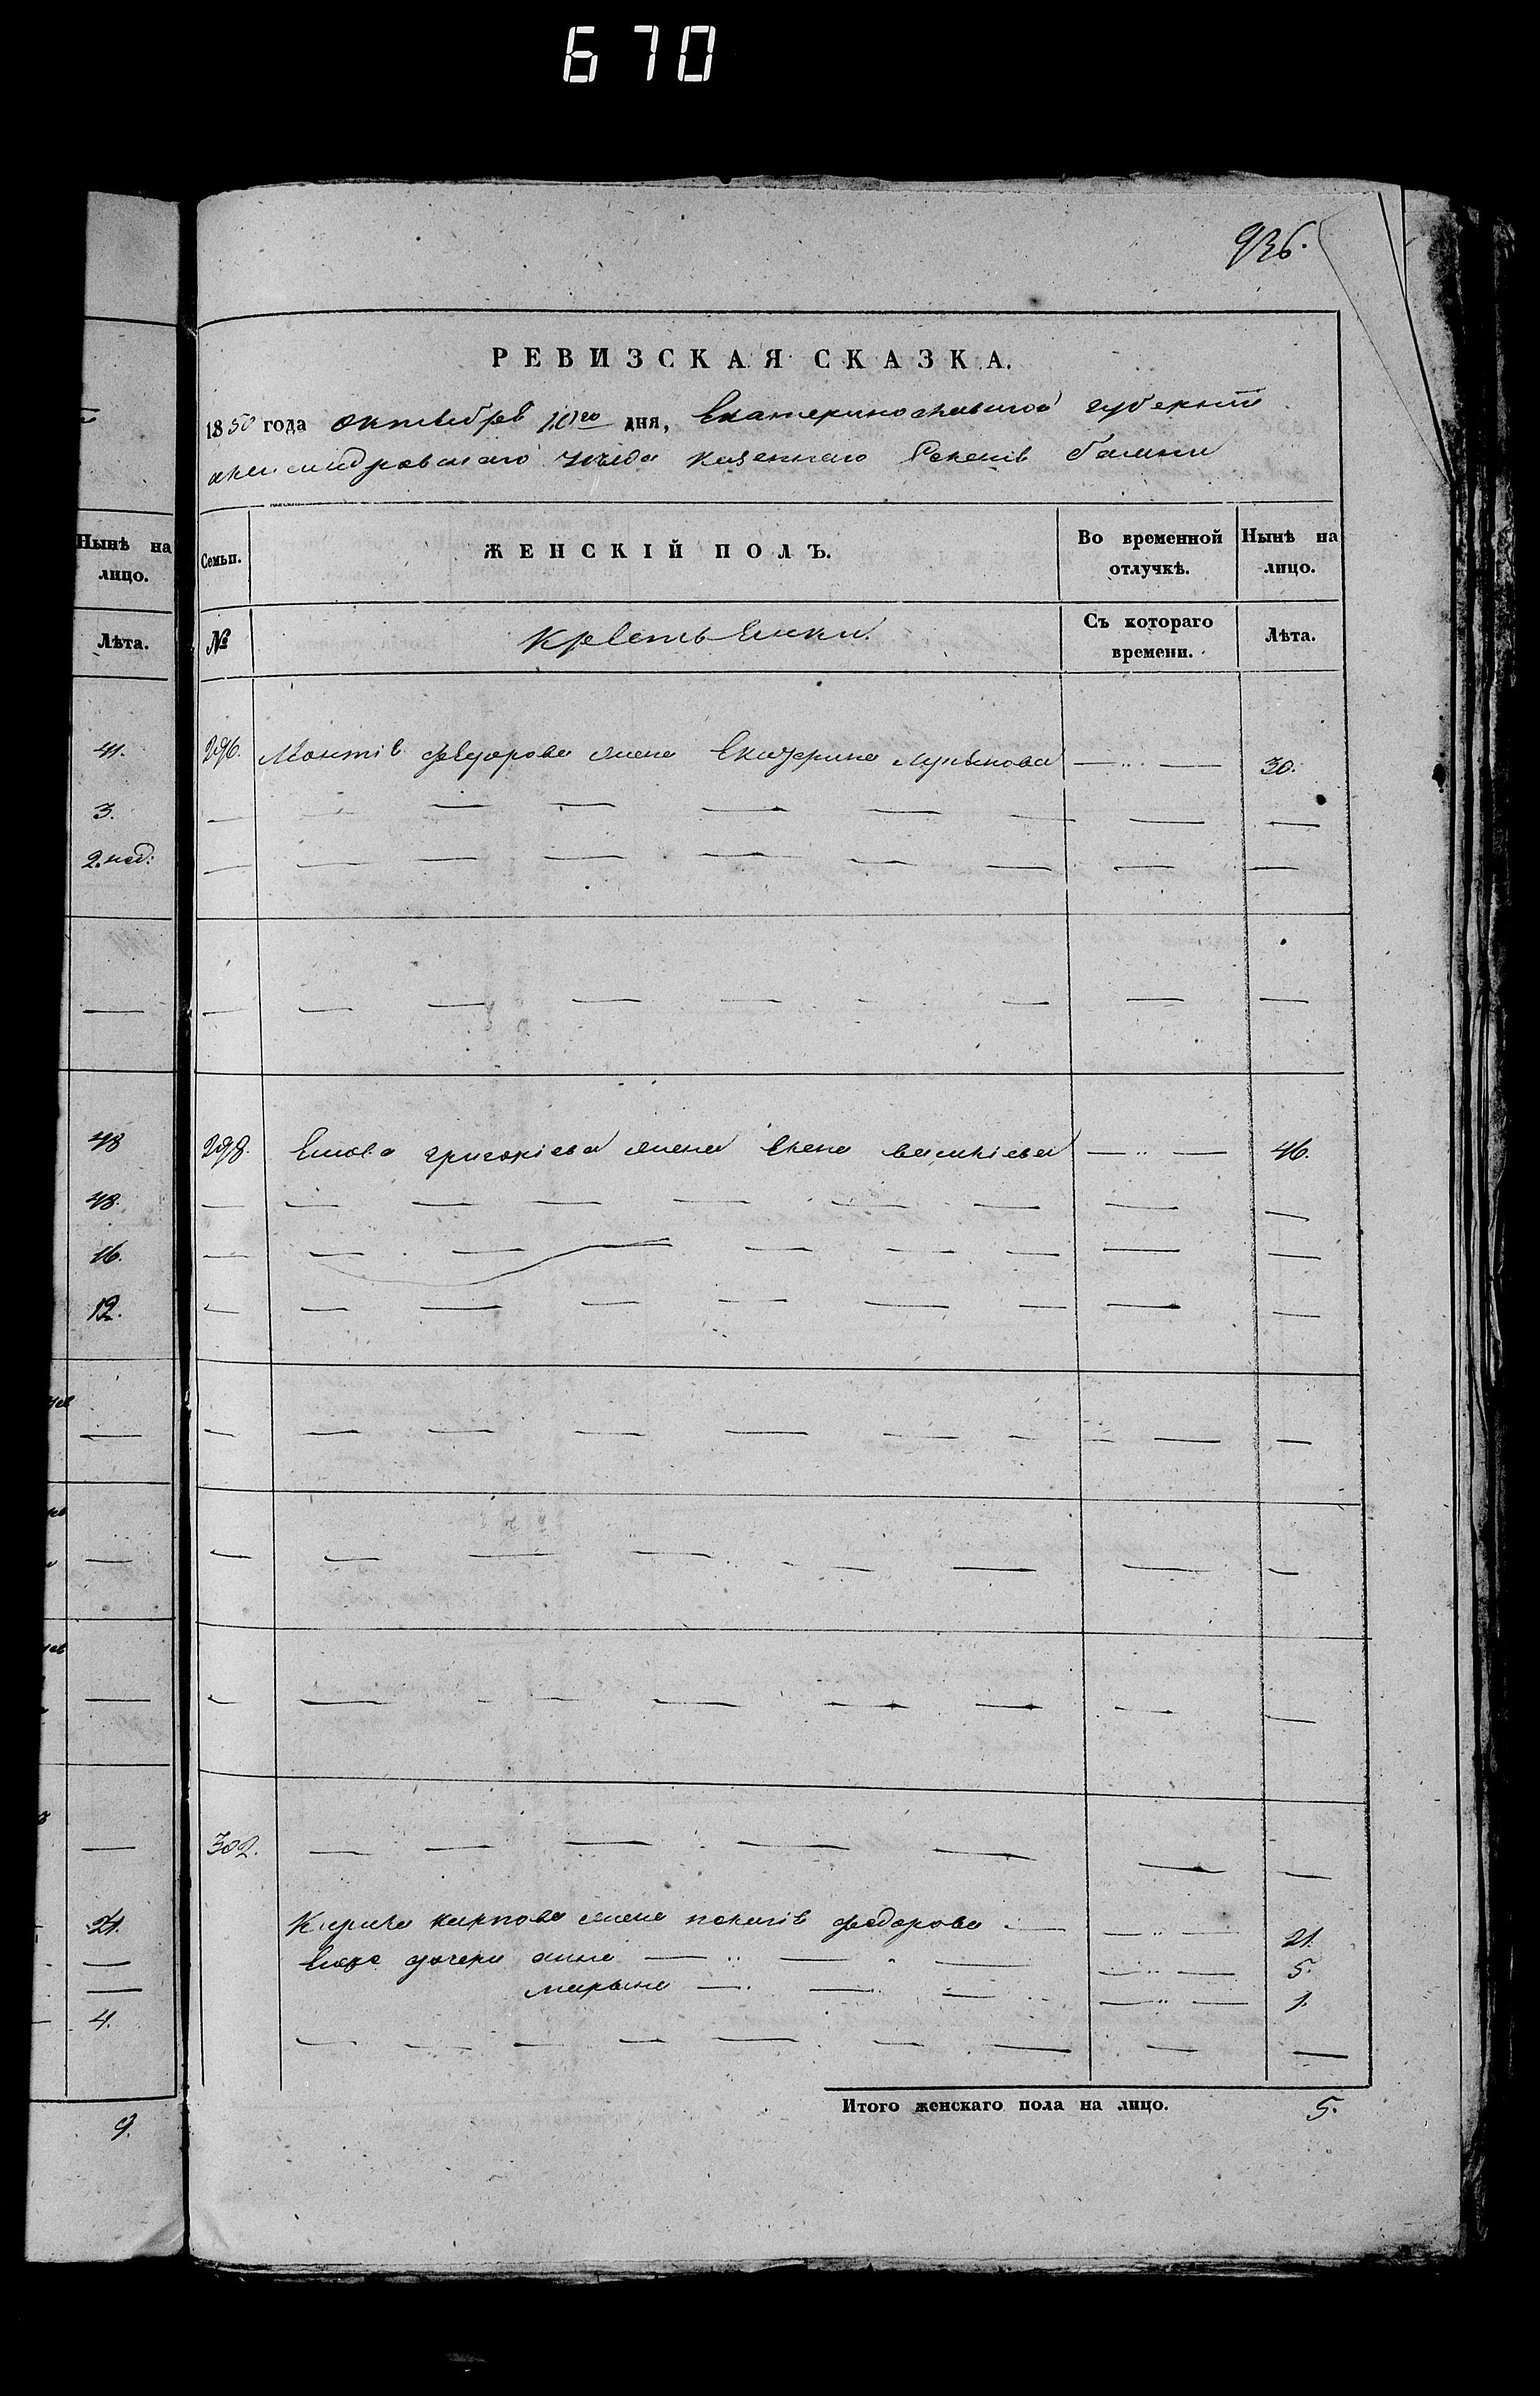 670
936.
РЕВИЗСКАЯ СКАЗКА.
1850 года октября 10го дня, Екатеринославской губернии
александровскаго уезда казеннаго Селенія
Нынѣ на лицо.
Лѣта.
41.
3.
2. нед:
48
48.
16.
12.
21.
4.
9.
Семьи. ЖЕНСКІЙ ПОЛЪ. Во временной отлучкѣ. Нынѣ на лицо.
№ Крестьянки. Съ котораго времени. Лѣта.
296. федорова жена Екатерина — " — 30.
298. Якова григоріева жена Елена василіева — " — 46.
302.
карпова жена пелагія федорова — " — 21.
Якова дочери анна — " — 5.
марьяна — " — 1.
Итого женскаго пола на лицо. 5.